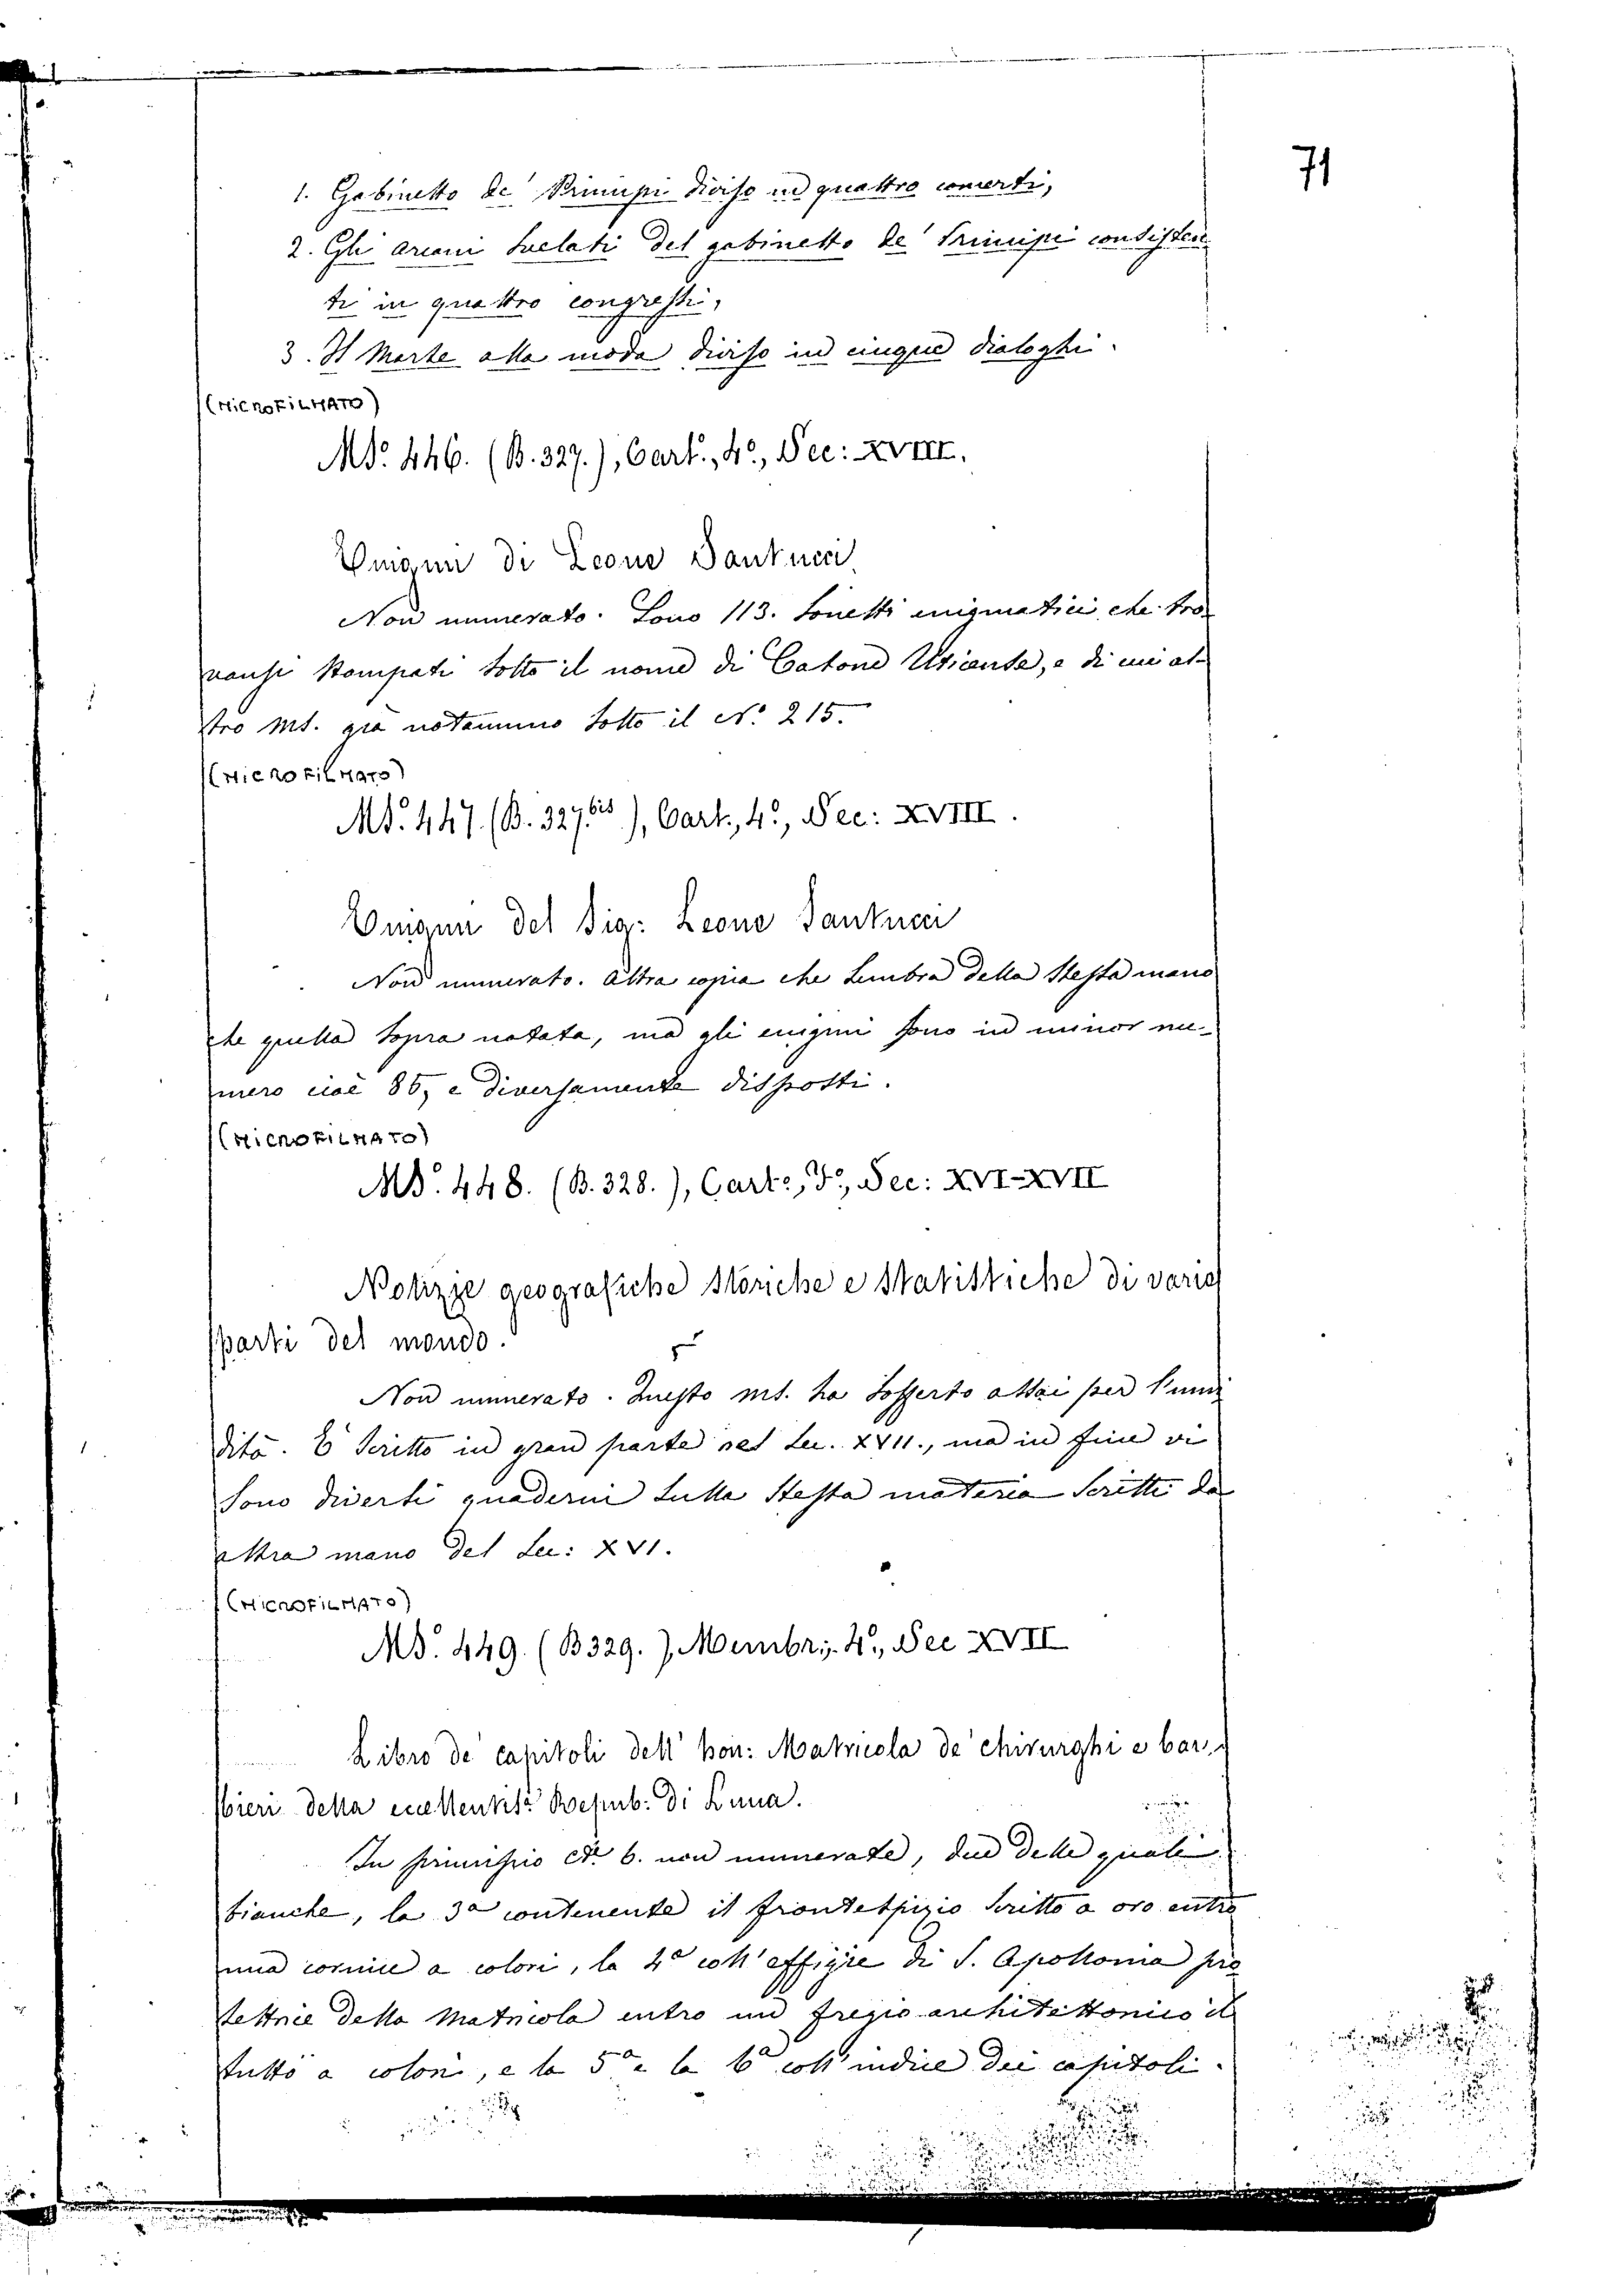 71
1. Gabinetto de' Principi diviso in quattro concerti,
2. Gli arcani svelati del gabinetto de' Principi consisten
ti in quattro congressi,
3. Il Marte alla moda diviso in cinque dialoghi.
(MICROFILMATO)
MS. 446. (B. 327.), Cart., 4º, Sec: XVIII.
Enigmi di Leone Santucci
Non numerato. Sono 113. sonetti enigmatici che tro
vansi stampati sotto il nome di Catone Uticense, e di cui al-
tro ms. già notammo sotto il Nº 215.
(MICROFILMATO)
MS. 447. (B. 327.bis), Cart., 4º, Sec: XVIII.
Enigmi del Sig: Leone Santucci
Non numerato. Altra copia che sembra della stessa mano
che quella sopra notata, ma gli enigmi sono in minor nu-
mero cioè 86, e diversamente disposti.
(MICROFILMATO)
MS. 448. (B. 328.), Cart:, Fº, Sec: XVI-XVII
Notizie geografiche storiche e statistiche di varie
parti del mondo.
Non numerato. Questo ms. ha sofferto assai per l'umi
dità. È scritto in gran parte nel sec. XVII., ma in fine vi
sono diversi quaderni sulla stessa materia scritti da
altra mano del sec: XVI.
(MICROFILMATO)
MS. 449. (B 329.), Membr:, 4º, Sec XVII
Libro de' capitoli dell' hon: Matricola de' chirurghi e bar-
bieri della eccellentis: Repub: di Lucca.
In principio 6. non numerate, due delle quali
bianche, la 3ª contenente il frontespizio scritto a oro entro
una cornice a colori, la 4ª coll'effigie di S. Apollonia pro
tettrice della Matricola entro un fregio architettonico il
tutto a colori, e la 5ª e la 6ª coll'indice dei capitoli.